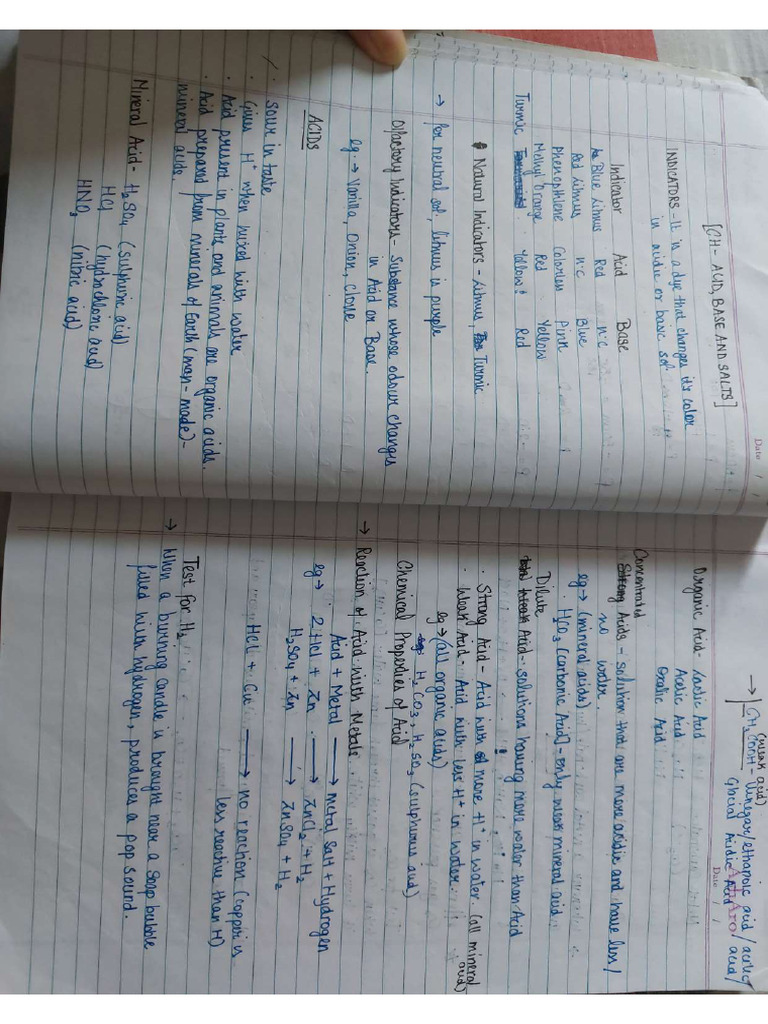 Date / /
[CH- ACID, BASE AND SALTS]
INDICATORS - It is a dye that changes it's color
in acidic or basic sol
Indicator Acid Base
Blue litmus Red n.c
Red Litmus n.c Blue
Phenopthlene Colorless Pink
Methyl Orange Red Yellow
Turmic Yellow Red
Natural Indicators - Litmus, Turmic
→ for neutral sol, litmus is purple
Olfactory Indicators - Substance whose odour changes
in Acid or Base.
eg. → Vanilla, Onion, Clove
ACIDS
Sour in taste
· Gives H+ when mixed with water
· Acid present in plants and animals are organic acids.
· Acid prepared from minerals of Earth (man-made) -
mineral acids.
Mineral Acid - H2SO4 (sulphuric acid)
HCl (hydrochloric acid)
HNO3 (nitric acid)
(weak acid)
→ CH3COOH - Vinegar/ethanoic acid/acetic acid/
Glacial Acidic Acid
Date / /
Organic Acid - Lactic Acid
Acetic Acid
Oxalic Acid
Concentrated
Acids - solution that are more acidic and have less/
no water.
eg → (mineral acids)
· H2CO3 (carbonic Acid) - only weak mineral acid
Dilute
Acid - solutions having more water than Acid
· Strong Acid - Acid with more H+ in water (all mineral acid)
· Weak Acid - Acid with less H+ in water.
eg → (all organic acids)
H2CO3, H2SO3 (sulphurous acid)
Chemical Properties of Acid
→ Reaction of Acid with Metals
Acid + Metal → Metal Salt + Hydrogen
eg → 2HCl + Zn → ZnCl2 + H2
H2SO4 + Zn → ZnSO4 + H2
HCl + Cu → no reaction (copper is
less reactive than H)
Test for H2
→ When a burning candle is brought near a soap bubble
filled with hydrogen, produces a pop sound.